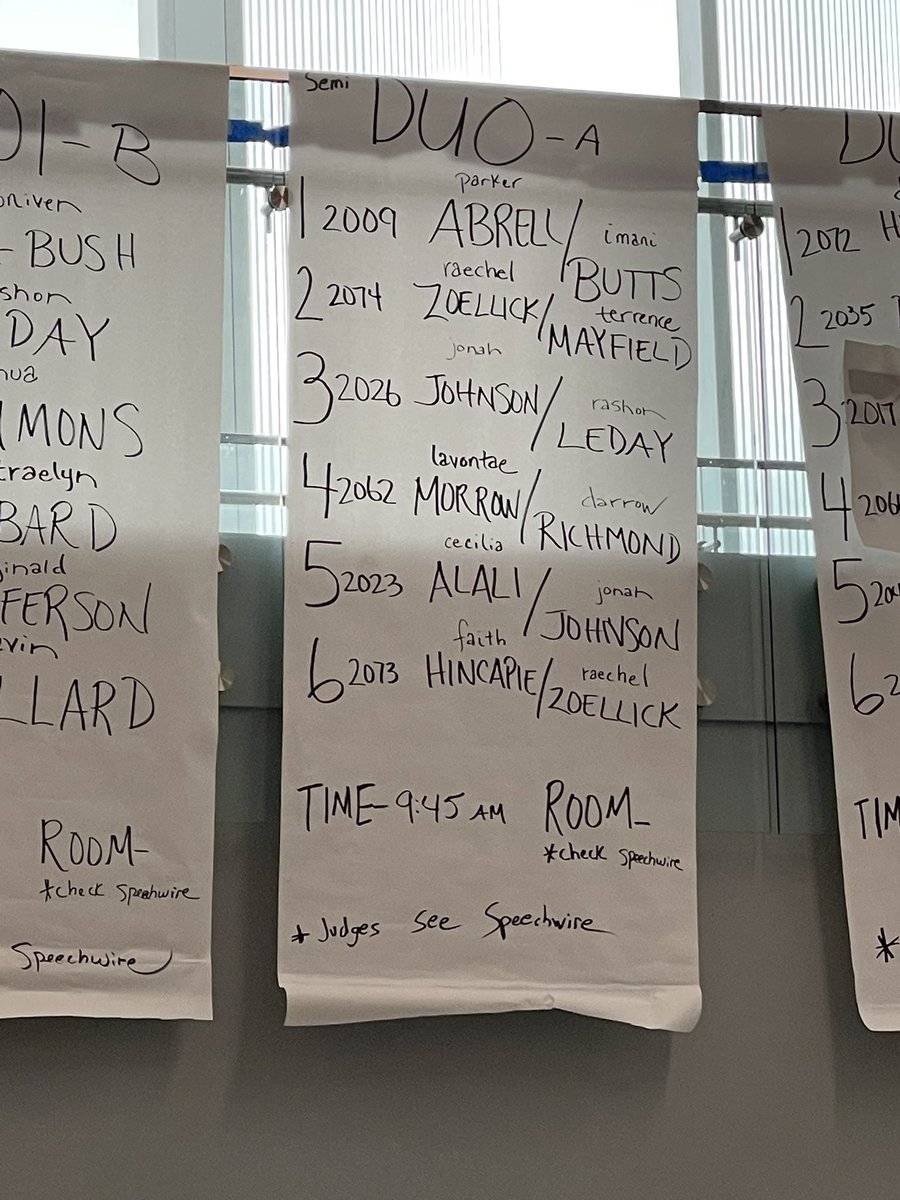 OI-B
oniven
-BUSH
shon
DAY
hua
MMONS
traelyn
BARD
inald
FERSON
evin
LLARD
ROOM-
*check Speechwire
Speechwire
Semi
DUO-A
parker
1 2009 ABRELL/
imani
BUTTS
raechel
2 2074 ZOELLICK/
terrence
MAYFIELD
jonah
3 2026 JOHNSON/
rashon
LEDAY
lavontae
4 2062 MORROW/
darrow
RICHMOND
cecilia
5 2023 ALALI/
jonah
JOHNSON
faith
6 2073 HINCAPIE/
raechel
ZOELLICK
TIME-9:45 AM ROOM-
*check Speechwire
*Judges see Speechwire
DU
1 2072 H
2 2035
3 2017
4 206
5 20
6 2
TIM
*